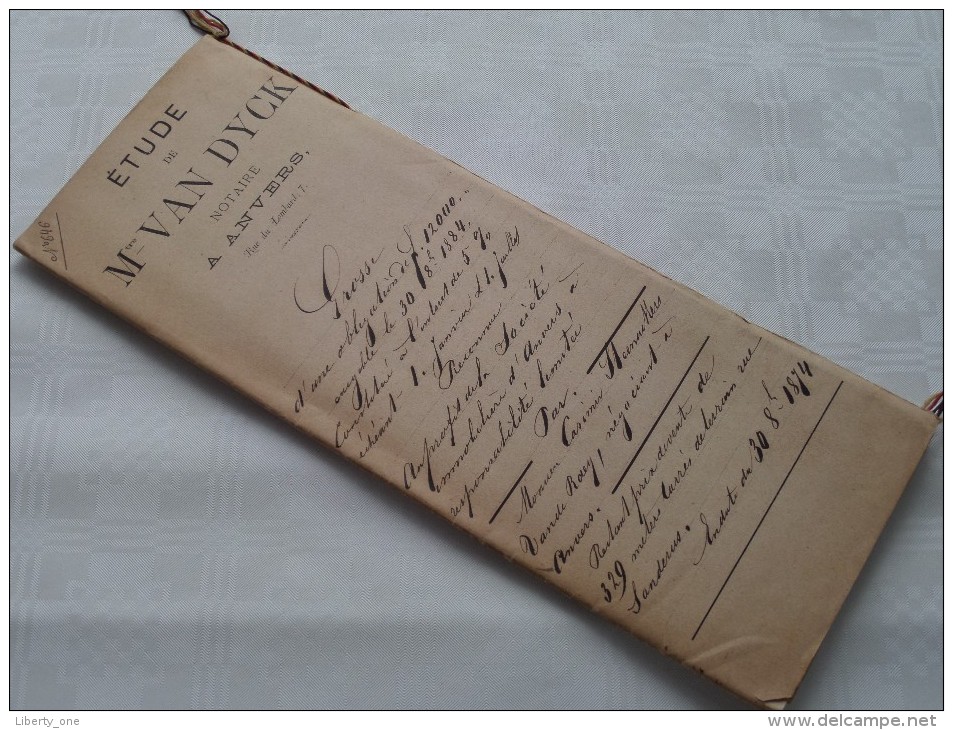 N° 646
ÉTUDE
DE
Mtre VAN DYCK
NOTAIRE
A ANVERS,
Rue du Lombard, 7.
Grosse
d'une obligation de f. 12000.
exigible le 30 8bre 1884,
Constitué à l'intérêt de 5 %
échéant 1. Janvier & 1. juillet
Reconnue
Au profit de la Société
immobilière d'Anvers à
responsabilité limité
Par:
Monsieur Casimir
Vande Raey, négociant à
Anvers.
Restant prix de vente de
329 mètres Carrés de terrain rue
Sanderus.
En date du 30 8bre 1874
Liberty_one
www.delcampe.net